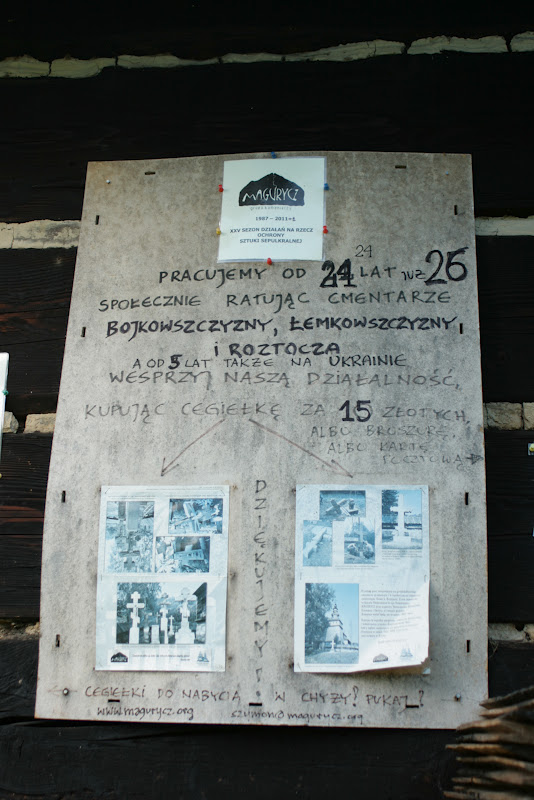 MAGURYCZ
1987 – 2011+1
XXV SEZON DZIAŁAŃ NA RZECZ
OCHRONY
SZTUKI SEPULKRALNEJ
24
PRACUJEMY OD 24 LAT JUŻ 26
SPOŁECZNIE RATUJĄC CMENTARZE
BOJKOWSZCZYZNY, ŁEMKOWSZCZYZNY
i ROZTOCZA
A OD 5 LAT TAKŻE NA UKRAINIE
WESPRZYJ NASZĄ DZIAŁALNOŚĆ,
KUPUJĄC CEGIEŁKĘ ZA 15 ZŁOTYCH,
ALBO BROSZURĘ,
ALBO KARTĘ
POCZTOWĄ →
DZIĘKUJEMY!
CEGIEŁKI DO NABYCIA W CHYŻY! PUKAJ!
www.magurycz.org szymon@magurycz.org